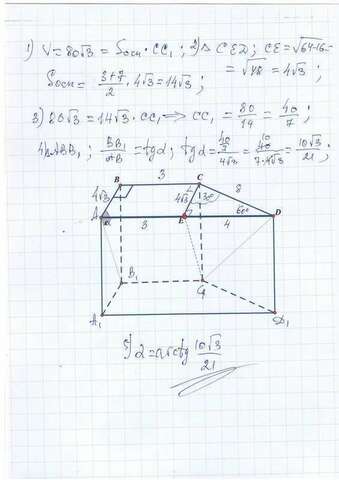 1) V = 80√3 = Sосн · CC₁ ; 2) △ CED ; CE = √64-16 =
= √48 = 4√3 ;
Sосн = (3+7)/2 · 4√3 = 14√3 ;
3) 80√3 = 14√3 · CC₁ ⟹ CC₁ = 80/14 = 40/7 ;
4) △ABB₁ ; BB₁/AB = tgα ; tgα = (40/7)/(4√3) = 40/(7·4√3) = 10√3/21 ;
B 3 C
4√3 4√3 30° 8
A α 3 E 4 60° D
B₁ C₁
A₁ D₁
5) α = arctg 10√3/21